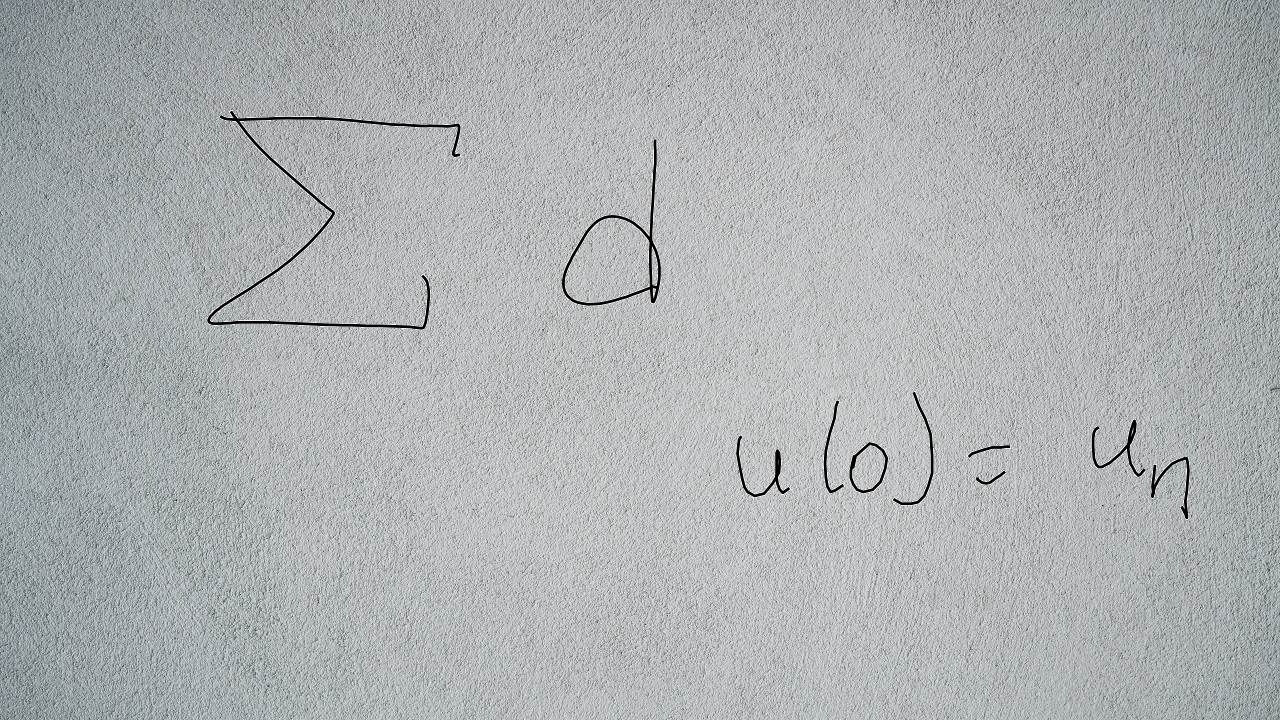 Σ d
u(0) = uₙ